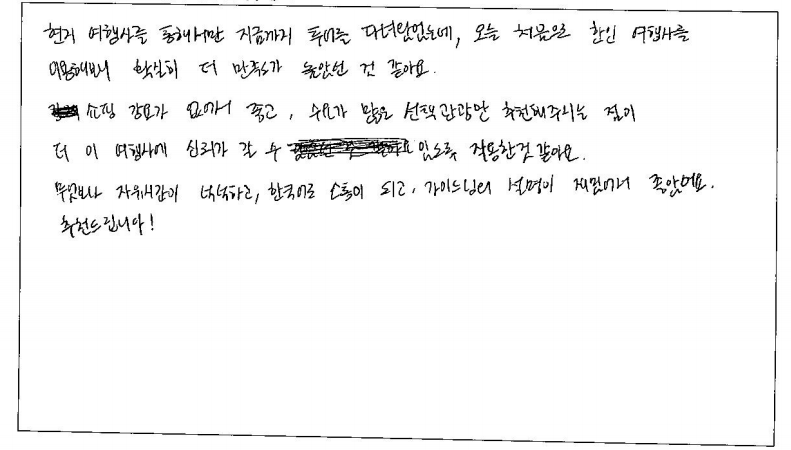 현지 여행사를 통해서만 지금까지 투어를 다녀왔었는데, 오늘 처음으로 한인 여행사를
이용해보니 확실히 더 만족스가 높았던 것 같아요.
쇼핑 강요가 없어서 좋고, 수요가 많은 선택관광만 추천해주시는 점이
더 이 여행사에 신뢰가 갈 수 있도록 작용한것 같아요.
무엇보다 자유시간이 넉넉하고, 한국어로 소통이 되고, 가이드님의 설명이 재밌어서 좋았어요.
추천드립니다!